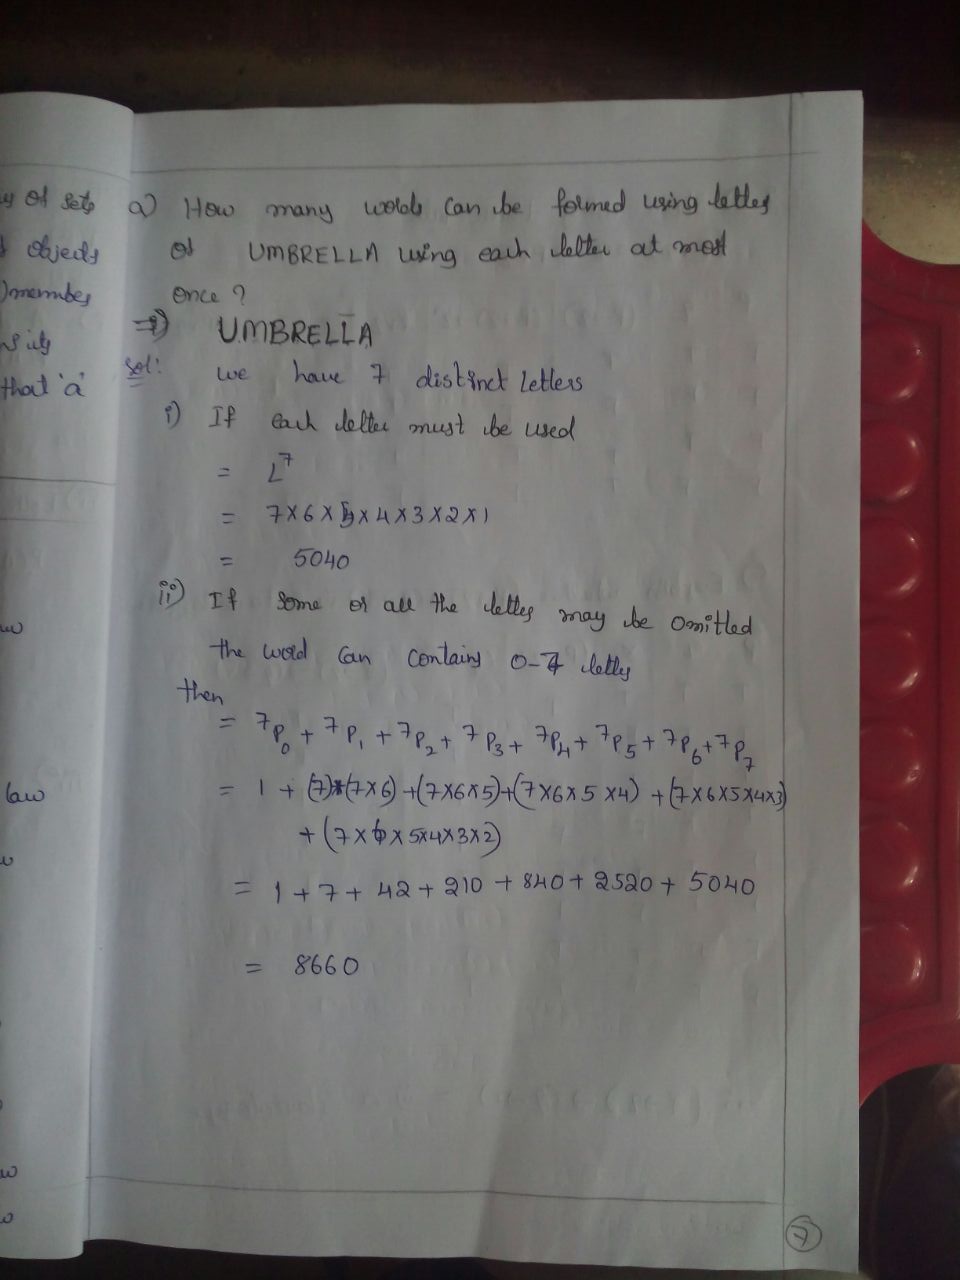 y of sets
objects
member
that 'a'
law
a) How many words can be formed using letters
of UMBRELLA using each letter at most
once ?
=> i) UMBRELLA
Sol: we have 7 distinct Letters
i) If each letter must be used
= L7
= 7×6×5×4×3×2×1
= 5040
ii) If some or all the letters may be omitted
the word can contains 0-7 letters
then
= 7P0 + 7P1 + 7P2 + 7P3 + 7P4 + 7P5 + 7P6 + 7P7
= 1 + (7)+(7×6) +(7×6×5)+(7×6×5×4) +(7×6×5×4×3)
+ (7×6×5×4×3×2)
= 1 + 7 + 42 + 210 + 840 + 2520 + 5040
= 8660
7